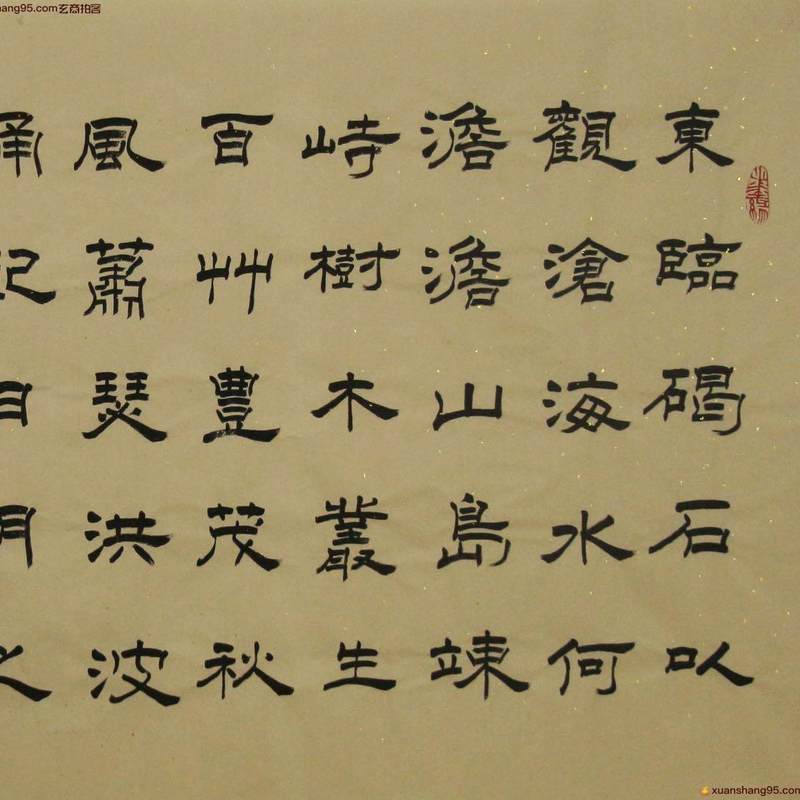 shang95.com玄商拍客
東臨碣石以
觀滄海水何
澹澹山島竦
峙樹木叢生
百艸豐茂秋
風蕭瑟洪波
涌起日月之
xuanshang95.com